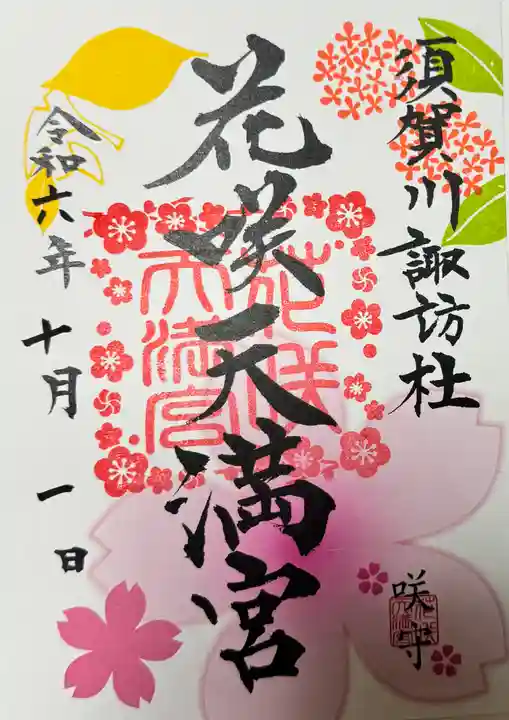 須賀川諏訪社
花咲天満宮
花咲
天満宮
令和六年十月一日
咲守